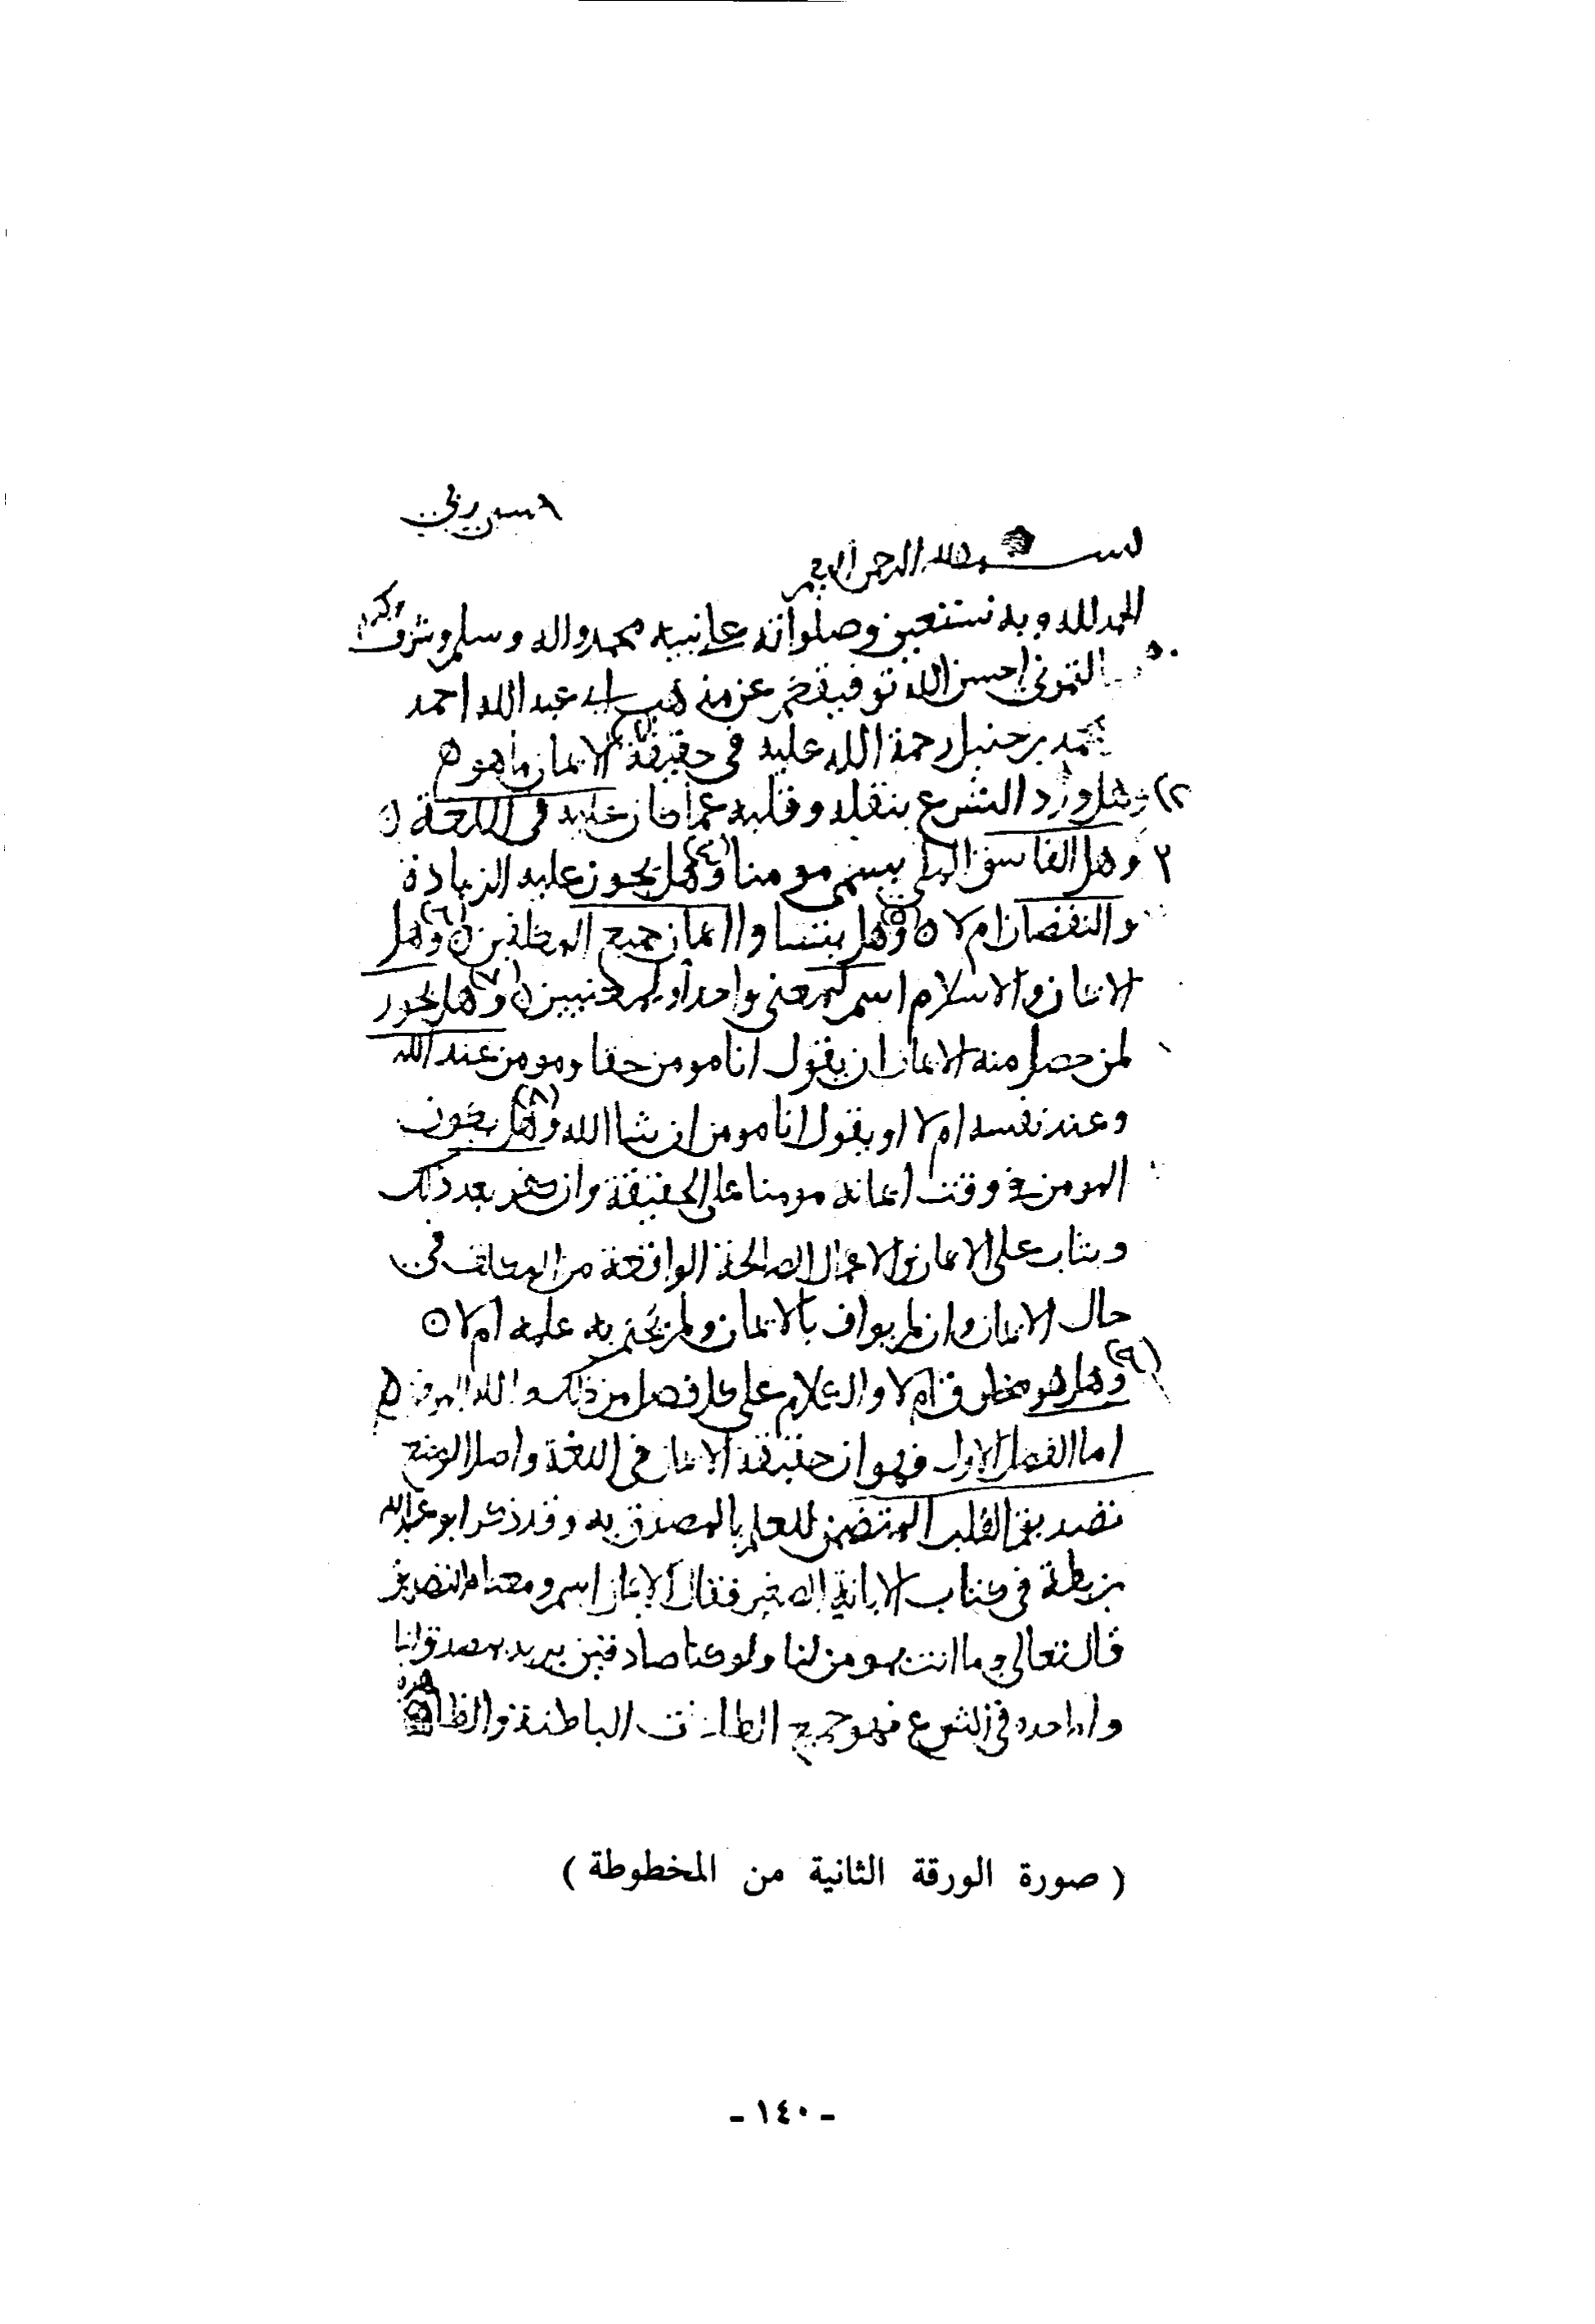 بسم الله الرحمن الرحيم
الحمد لله وبه نستعين وصلواته على نبيه محمد واله وسلم وشرف وكرم
التموني احسن الله توفيقكم عن مذهب ابي عبد الله احمد
محمد بن حنبل رحمة الله عليه في حقيقة (١) الايمان ما هو ه
(٢ وهل ورد الشرع بنقله وقلبه عما كان عليه في اللغة ن
٣ وهل الفاسق الملي يسمى مومنا (٤) وهل يجوز عليه الزيادة
والنقصان ام لا ن (٥) وهل يتساوا ايمان جميع المكلفين ن (٦) وهل
الايمان والاسلام اسم لمعنى واحد او لمعنيين ن (٧) وهل يجوز
لمن حصل منه الايمان ان يقول انا مومن حقا ومومن عند الله
وعند نفسه ام لا او يقول انا مومن ان شا الله (٨) وهل يكون
المومن في وقت ايمانه مومنا على الحقيقة وان كفر بعد ذلك
ويثاب على الايمان والاعمال الصالحة الواقعة من المكلف في
حال الايمان وان لم يواف بالايمان ولم يختم به عليه ام لا ن
(٩) وهل هو مخلوق ام لا والكلام على كل فصل من ذلك والله الموفق ه
اما الفصل الاول فهو ان حقيقة الايمان في اللغة واصل الوضع
تصديق القلب المتضمن للعلم بالمصدق به وقد ذكر ابو عبد الله
بن بطة في كتاب الابانة الصغير فقال الايمان اسم ومعناه التصديق
قال تعالى وما انت بمومن لنا ولو كنا صادقين يريد بمصدق لنا
واما حده في الشرع فهو جميع الطاعات الباطنة والظاهرة
( صورة الورقة الثانية من المخطوطة )
- ١٤٠ -